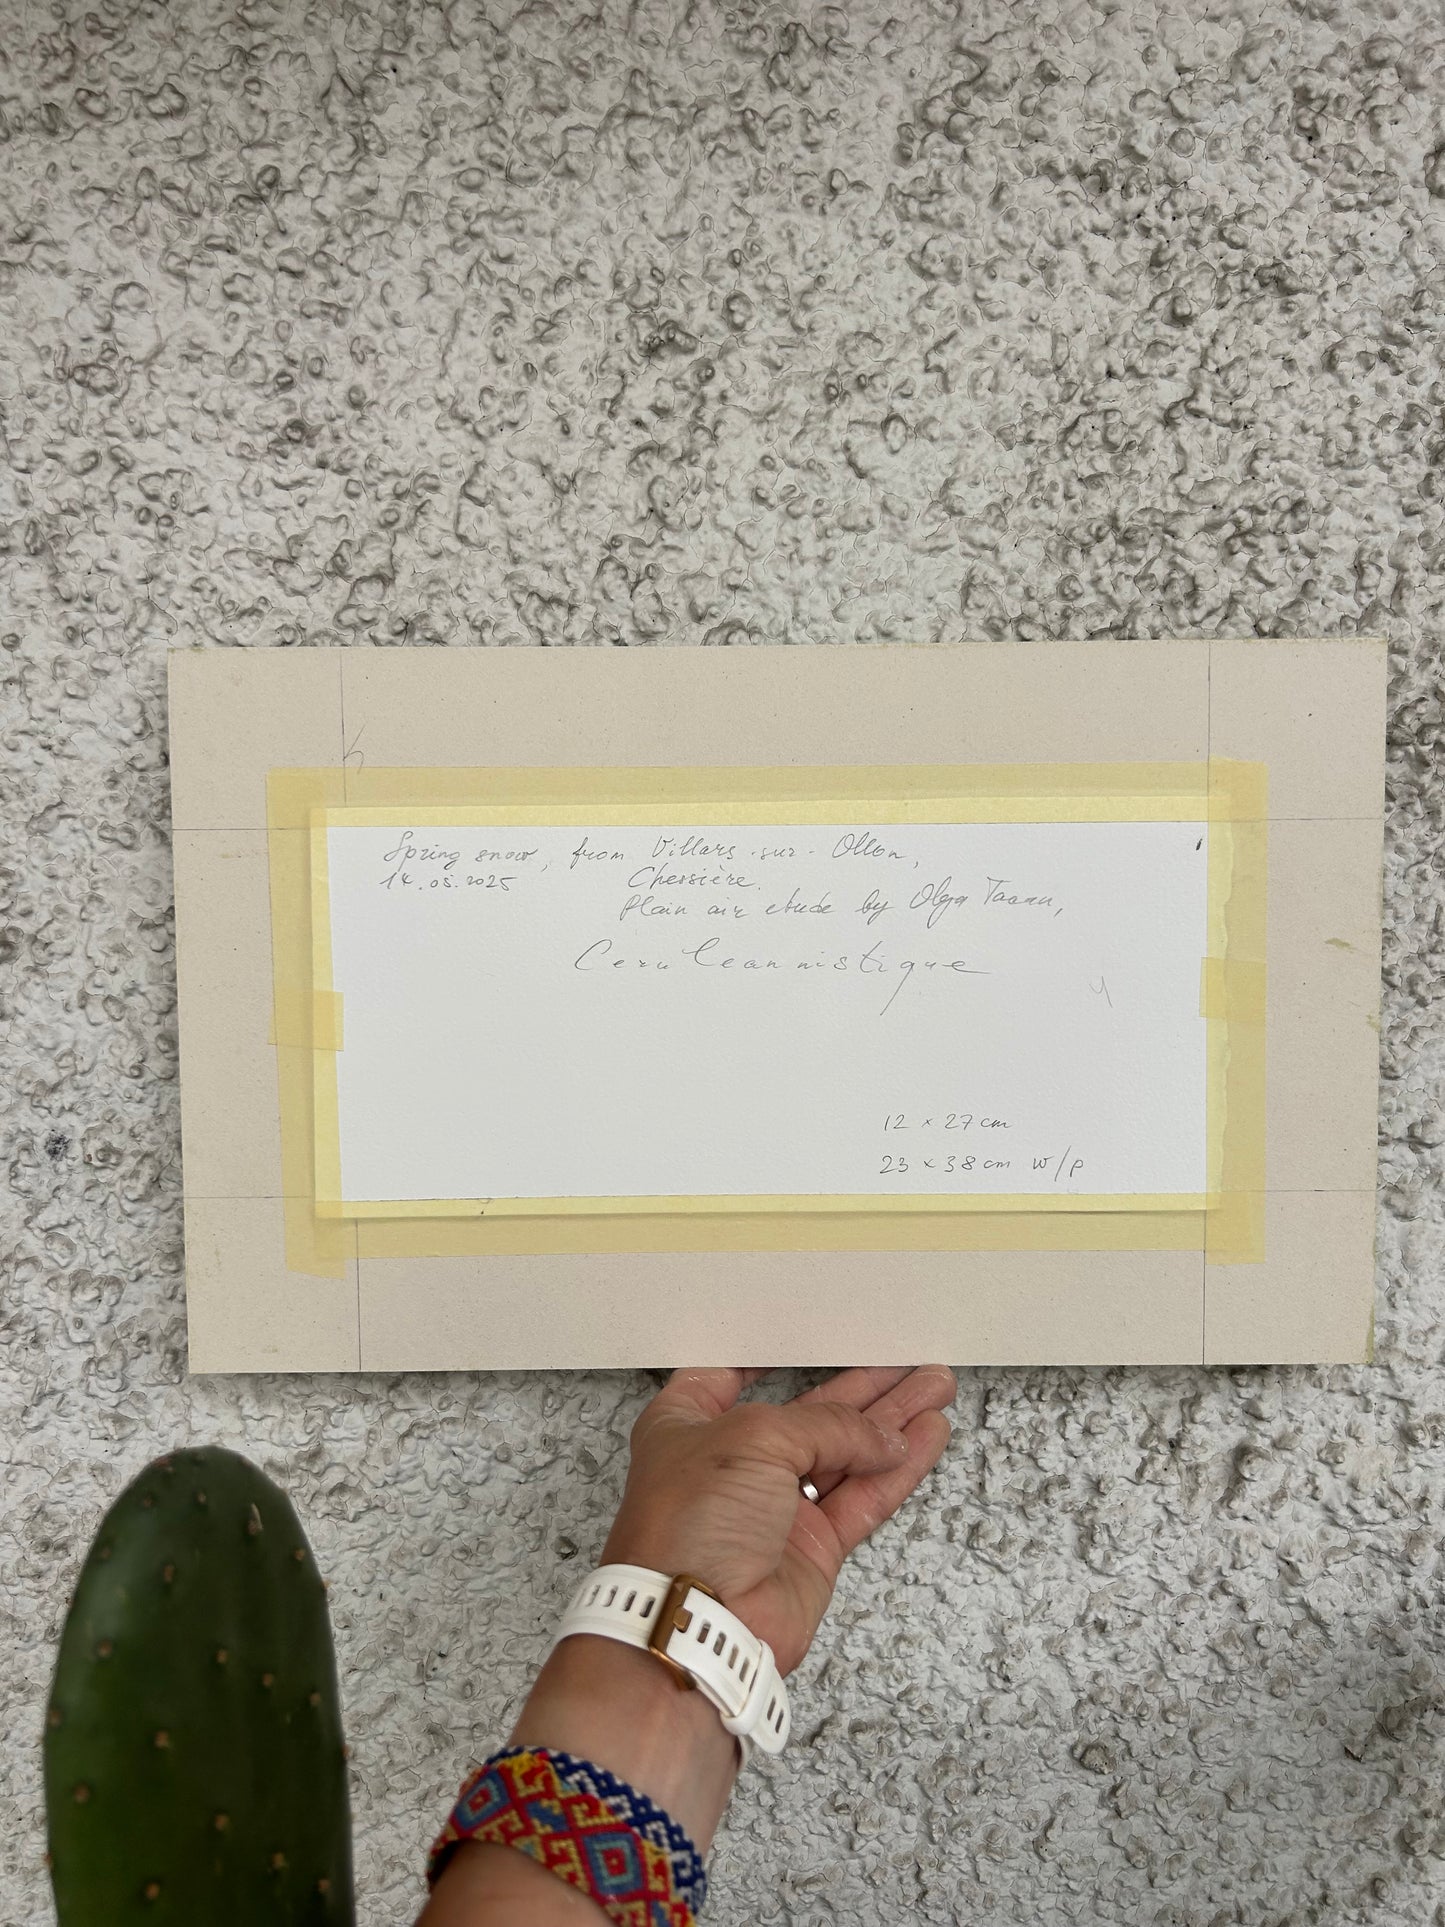 Spring snow, from Villars-sur-Ollon,
14.05.2025 Chessière.
Plain air etude by Olga
Ceruleannistique
12 × 27 cm
23 × 38 cm w/p